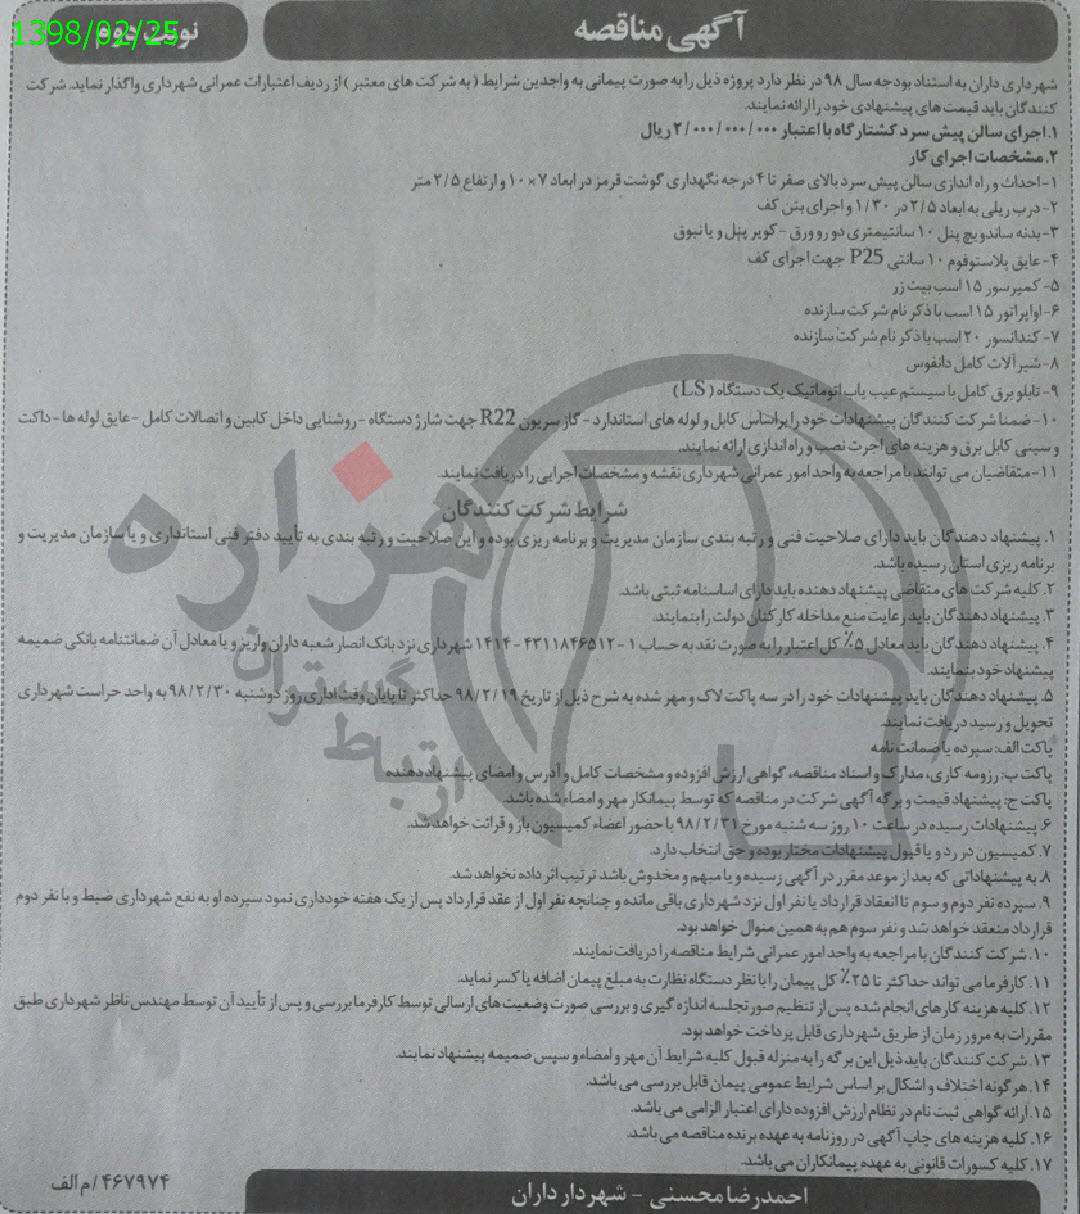 آگهی مناقصه
نوبت دوم
1398/02/25
شهرداری داران به استناد بودجه سال ۹۸ در نظر دارد پروژه ذیل را به صورت پیمانی به واجدین شرایط (به شرکت های معتبر) از ردیف اعتبارات عمرانی شهرداری واگذار نماید. شرکت
کنندگان باید قیمت های پیشنهادی خود را ارائه نمایند.
۱. اجرای سالن پیش سرد کشتارگاه با اعتبار ۲/۰۰۰/۰۰۰/۰۰۰ ریال
۲. مشخصات اجرای کار
۱- احداث و راه اندازی سالن پیش سرد بالای صفر تا ۴ درجه نگهداری گوشت قرمز در ابعاد ۷×۱۰ و ارتفاع ۳/۵ متر
۲- درب ریلی به ابعاد ۲/۵ در ۱/۳۰ و اجرای بتن کف
۳- بدنه ساندویچ پنل ۱۰ سانتیمتری دو رو ورق - کویر پنل و یا نیوق
۴- عایق پلاستوفوم ۱۰ سانتی P25 جهت اجرای کف
۵- کمپرسور ۱۵ اسب بیت زر
۶- اواپراتور ۱۵ اسب با ذکر نام شرکت سازنده
۷- کندانسور ۲۰ اسب با ذکر نام شرکت سازنده
۸- شیرآلات کامل دانفوس
۹- تابلو برق کامل با سیستم عیب یاب اتوماتیک یک دستگاه (LS)
۱۰- ضمنا شرکت کنندگان پیشنهادات خود را براساس کابل و لوله های استاندارد - گاز سریون R22 جهت شارژ دستگاه - روشنایی داخل کابین و اتصالات کامل - عایق لوله ها - داکت
و سینی کابل برق و هزینه های اجرت نصب و راه اندازی ارائه نمایند.
۱۱- متقاضیان می توانند با مراجعه به واحد امور عمرانی شهرداری نقشه و مشخصات اجرایی را دریافت نمایند.
شرایط شرکت کنندگان
۱. پیشنهاد دهندگان باید دارای صلاحیت فنی و رتبه بندی سازمان مدیریت و برنامه ریزی بوده و این صلاحیت و رتبه بندی به تأیید دفتر فنی استانداری و یا سازمان مدیریت و
برنامه ریزی استان رسیده باشد.
۲. کلیه شرکت های متقاضی پیشنهاد دهنده باید دارای اساسنامه ثبتی باشد.
۳. پیشنهاد دهندگان باید رعایت منع مداخله کارکنان دولت را بنمایند.
۴. پیشنهاد دهندگان باید معادل ۵٪ کل اعتبار را به صورت نقد به حساب ۱-۴۳۱۱۸۴۶۵۱۲-۱۴۱۴ شهرداری نزد بانک انصار شعبه داران واریز و یا معادل آن ضمانتنامه بانکی ضمیمه
پیشنهاد خود بنمایند.
۵. پیشنهاد دهندگان باید پیشنهادات خود را در سه پاکت لاک و مهر شده به شرح ذیل از تاریخ ۹۸/۲/۱۹ حداکثر تا پایان وقت اداری روز دوشنبه ۹۸/۲/۳۰ به واحد حراست شهرداری
تحویل و رسید دریافت نمایند.
پاکت الف: سپرده یا ضمانت نامه
پاکت ب: رزومه کاری، مدارک و اسناد مناقصه، گواهی ارزش افزوده و مشخصات کامل و آدرس و امضای پیشنهاد دهنده
پاکت ج: پیشنهاد قیمت و برگه آگهی شرکت در مناقصه که توسط پیمانکار مهر و امضاء شده باشد.
۶. پیشنهادات رسیده در ساعت ۱۰ روز سه شنبه مورخ ۹۸/۲/۳۱ با حضور اعضاء کمیسیون باز و قرائت خواهد شد.
۷. کمیسیون در رد و یا قبول پیشنهادات مختار بوده و حق انتخاب دارد.
۸. به پیشنهاداتی که بعد از موعد مقرر در آگهی رسیده و یا مبهم و مخدوش باشد ترتیب اثر داده نخواهد شد.
۹. سپرده نفر دوم و سوم تا انعقاد قرارداد با نفر اول نزد شهرداری باقی مانده و چنانچه نفر اول از عقد قرارداد پس از یک هفته خودداری نمود سپرده او به نفع شهرداری ضبط و با نفر دوم
قرارداد منعقد خواهد شد و نفر سوم هم به همین منوال خواهد بود.
۱۰. شرکت کنندگان با مراجعه به واحد امور عمرانی شرایط مناقصه را دریافت نمایند.
۱۱. کارفرما می تواند حداکثر تا ۲۵٪ کل پیمان را با نظر دستگاه نظارت به مبلغ پیمان اضافه یا کسر نماید.
۱۲. کلیه هزینه کارهای انجام شده پس از تنظیم صورتجلسه اندازه گیری و بررسی صورت وضعیت های ارسالی توسط کارفرما بررسی و پس از تأیید آن توسط مهندس ناظر شهرداری طبق
مقررات به مرور زمان از طریق شهرداری قابل پرداخت خواهد بود.
۱۳. شرکت کنندگان باید ذیل این برگه را به منزله قبول کلیه شرایط آن مهر و امضاء و سپس ضمیمه پیشنهاد نمایند.
۱۴. هر گونه اختلاف و اشکال بر اساس شرایط عمومی پیمان قابل بررسی می باشد.
۱۵. ارائه گواهی ثبت نام در نظام ارزش افزوده دارای اعتبار الزامی می باشد.
۱۶. کلیه هزینه های چاپ آگهی در روزنامه به عهده برنده مناقصه می باشد.
۱۷. کلیه کسورات قانونی به عهده پیمانکاران می باشد.
احمدرضا محسنی - شهردار داران
۴۶۷۹۷۴/م الف
هزاره
گستران
ارتباط